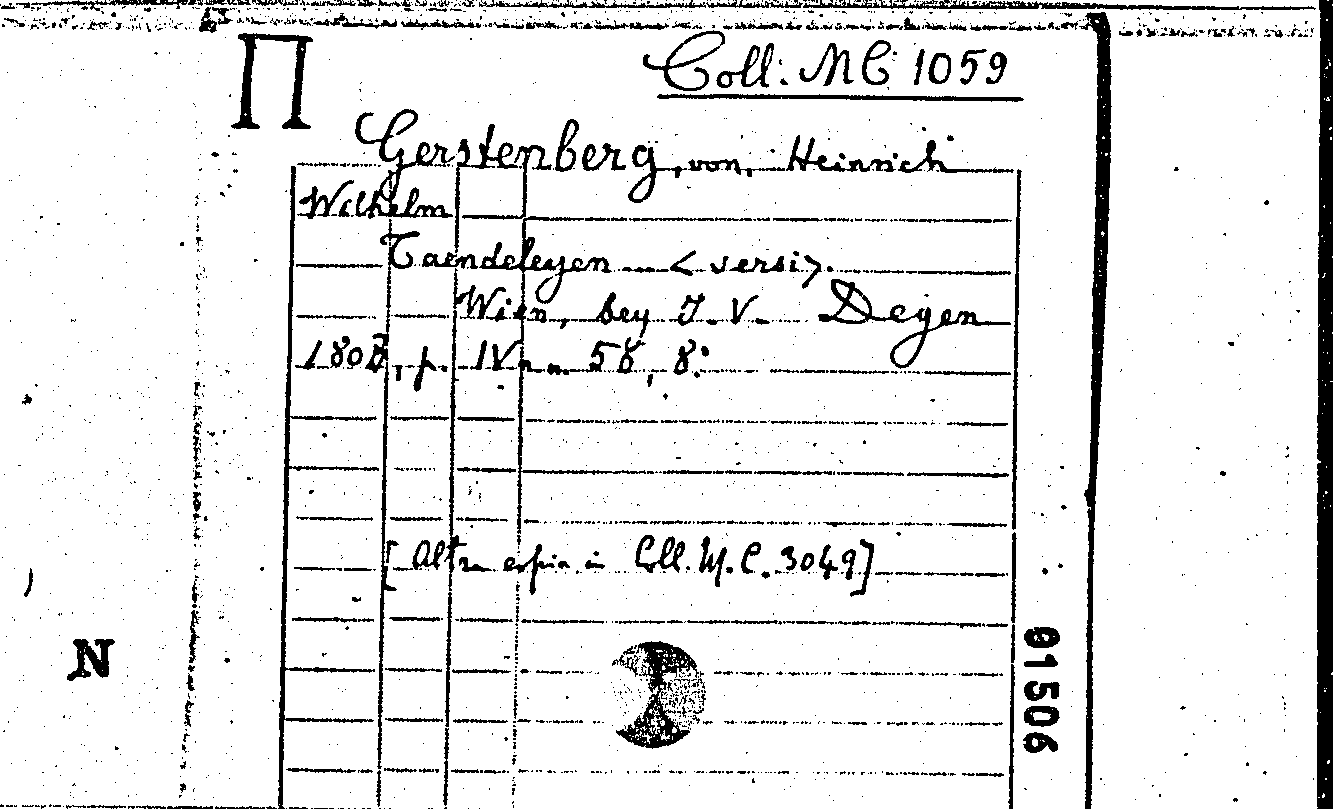 Π
Coll: MC 1059
Gerstenberg, von, Heinrich
Wilhelm
Taendeleyen ... < versi >.
Wien, bey J. V. Degen
p. IV n.n. 58, 8:°
[Altra copia in Coll. M. C. 3049]
N
01506